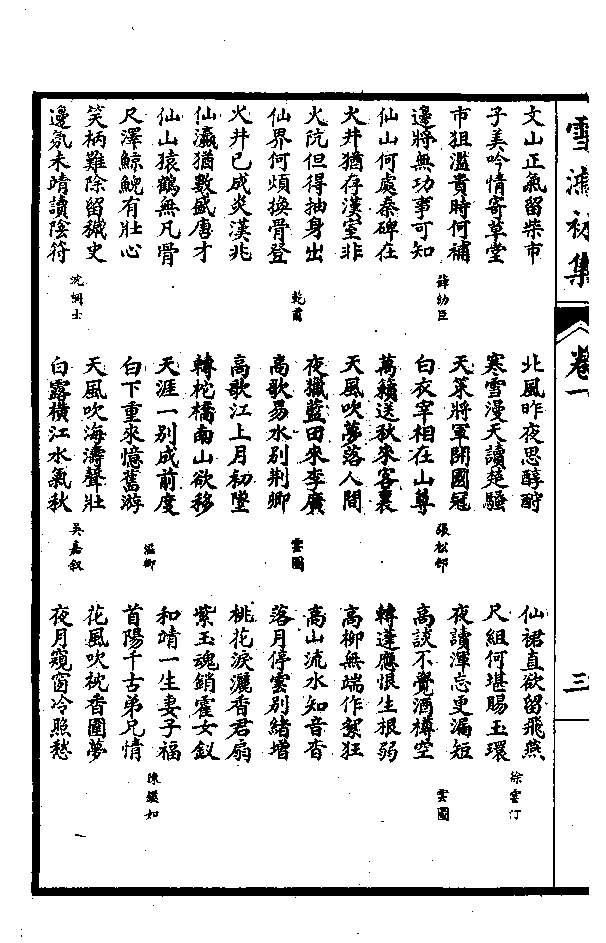 雪鴻初集
卷一
三
文山正氣留柴市
子美吟情寄草堂
市狙濫貴時何補
邊將無功事可知
薛幼臣
仙山何處秦碑在
火井猶存漢室非
火阬但得抽身出
仙界何煩換骨登
乾甫
火井已成炎漢兆
仙瀛猶數盛唐才
仙山猿鶴無凡骨
尺澤鯨鯢有壯心
笑柄難除留穢史
邊氛未靖讀陰符
沈士
北風昨夜思醇酎
寒雪漫天讀楚騷
天策將軍開國冠
白衣宰相在山尊
張松邨
萬籟送秋來客裏
天風吹夢落人間
夜獵藍田來李廣
高歌易水別荊卿
雲圖
高歌江上月初墜
轉柁橋南山欲移
天涯一別成前度
白下重來憶舊游
滋卿
天風吹海濤聲壯
白露橫江水氣秋
吳嘉叙
仙裙直欲留飛燕
尺組何堪賜玉環
徐雲汀
夜讀渾忘更漏短
高談不覺酒樽空
雲圖
轉蓬應恨生根弱
高柳無端作絮狂
高山流水知音杳
落月停雲別緒增
桃花淚灑香君扇
紫玉魂銷霍女釵
和靖一生妻子福
首陽千古弟兄情
陳繼如
花風吹枕香圍夢
夜月窺窗冷照愁